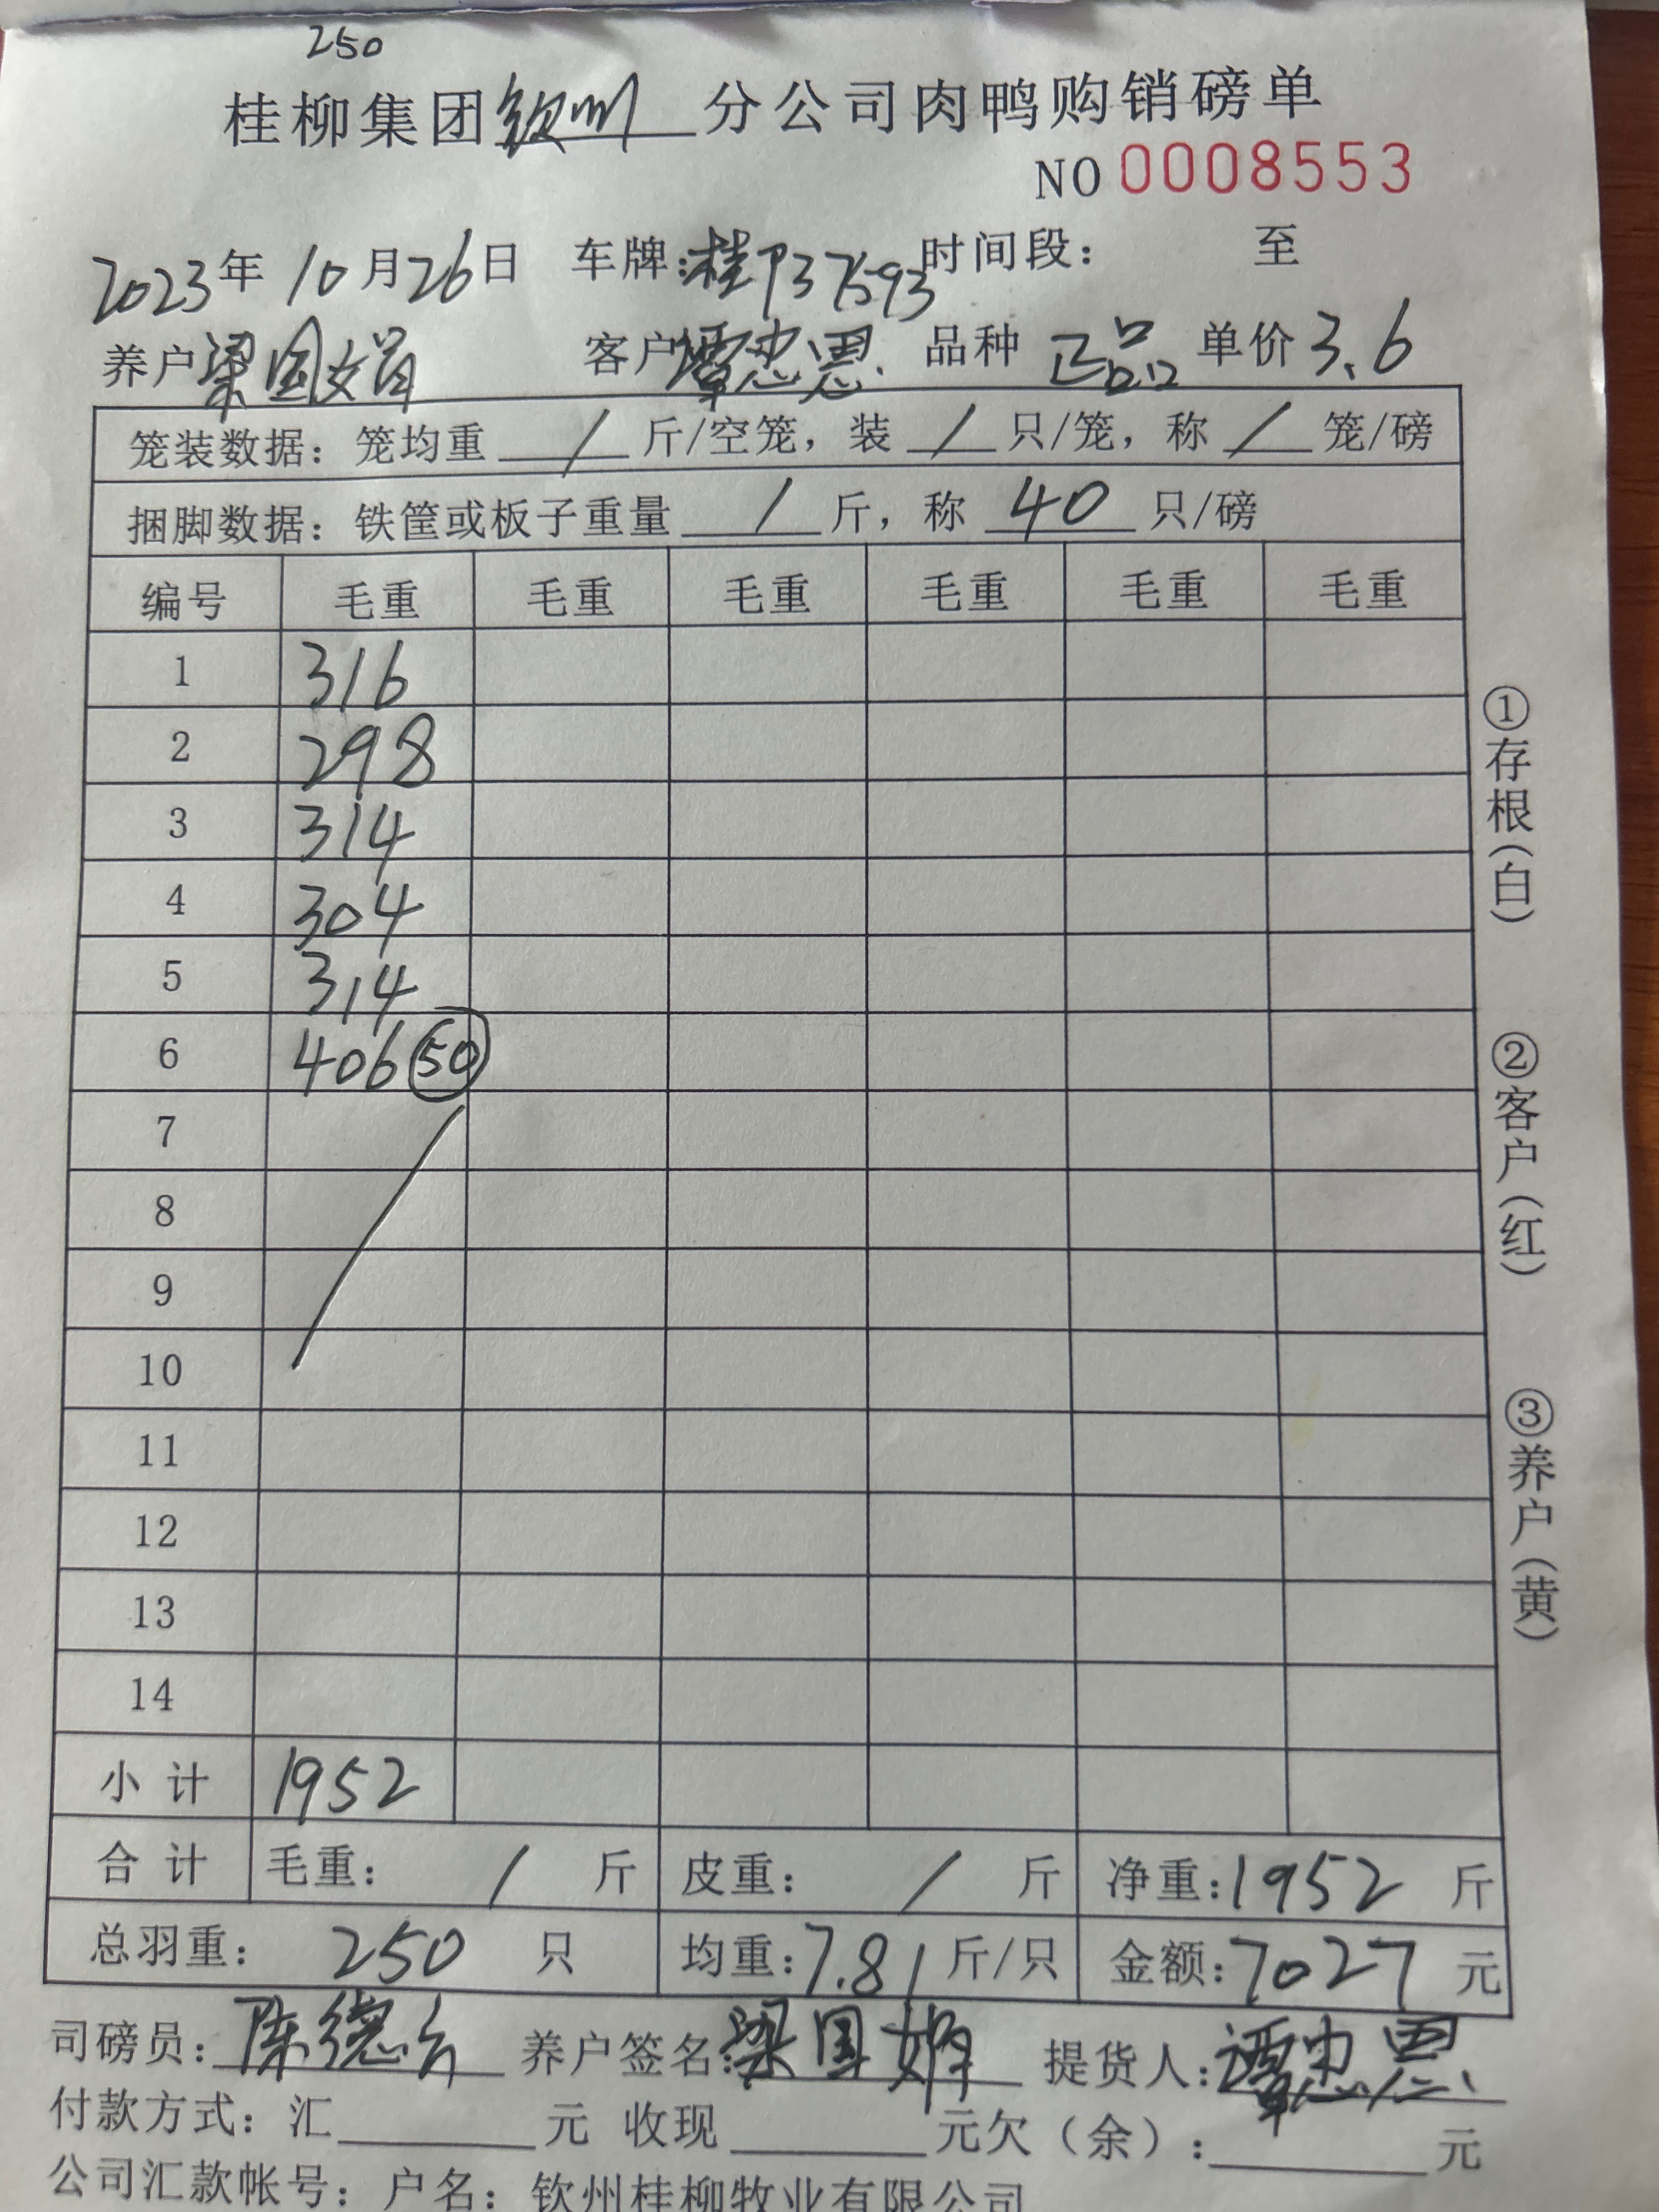 250
桂柳集团钦州分公司肉鸭购销磅单
NO 0008553
2023年10月26日 车牌:桂P37593 时间段: 至
养户梁国娟 客户覃忠恩 品种 正品 单价3.6
笼装数据: 笼均重 / 斤/空笼, 装 / 只/笼, 称 / 笼/磅
捆脚数据: 铁筐或板子重量 / 斤, 称 40 只/磅
编号 毛重 毛重 毛重 毛重 毛重 毛重
1 316
2 298
3 314
4 304
5 314
6 406 50
7
8
9
10
11
12
13
14
小计 1952
合计 毛重: / 斤 皮重: / 斤 净重:1952 斤
总羽重: 250 只 均重:7.81斤/只 金额:7027 元
司磅员:陈德 养户签名:梁国娟 提货人:谭忠恩
付款方式: 汇 元 收现 元欠(余): 元
公司汇款帐号: 户名: 钦州桂柳牧业有限公司
①存根(白)
②客户(红)
③养户(黄)